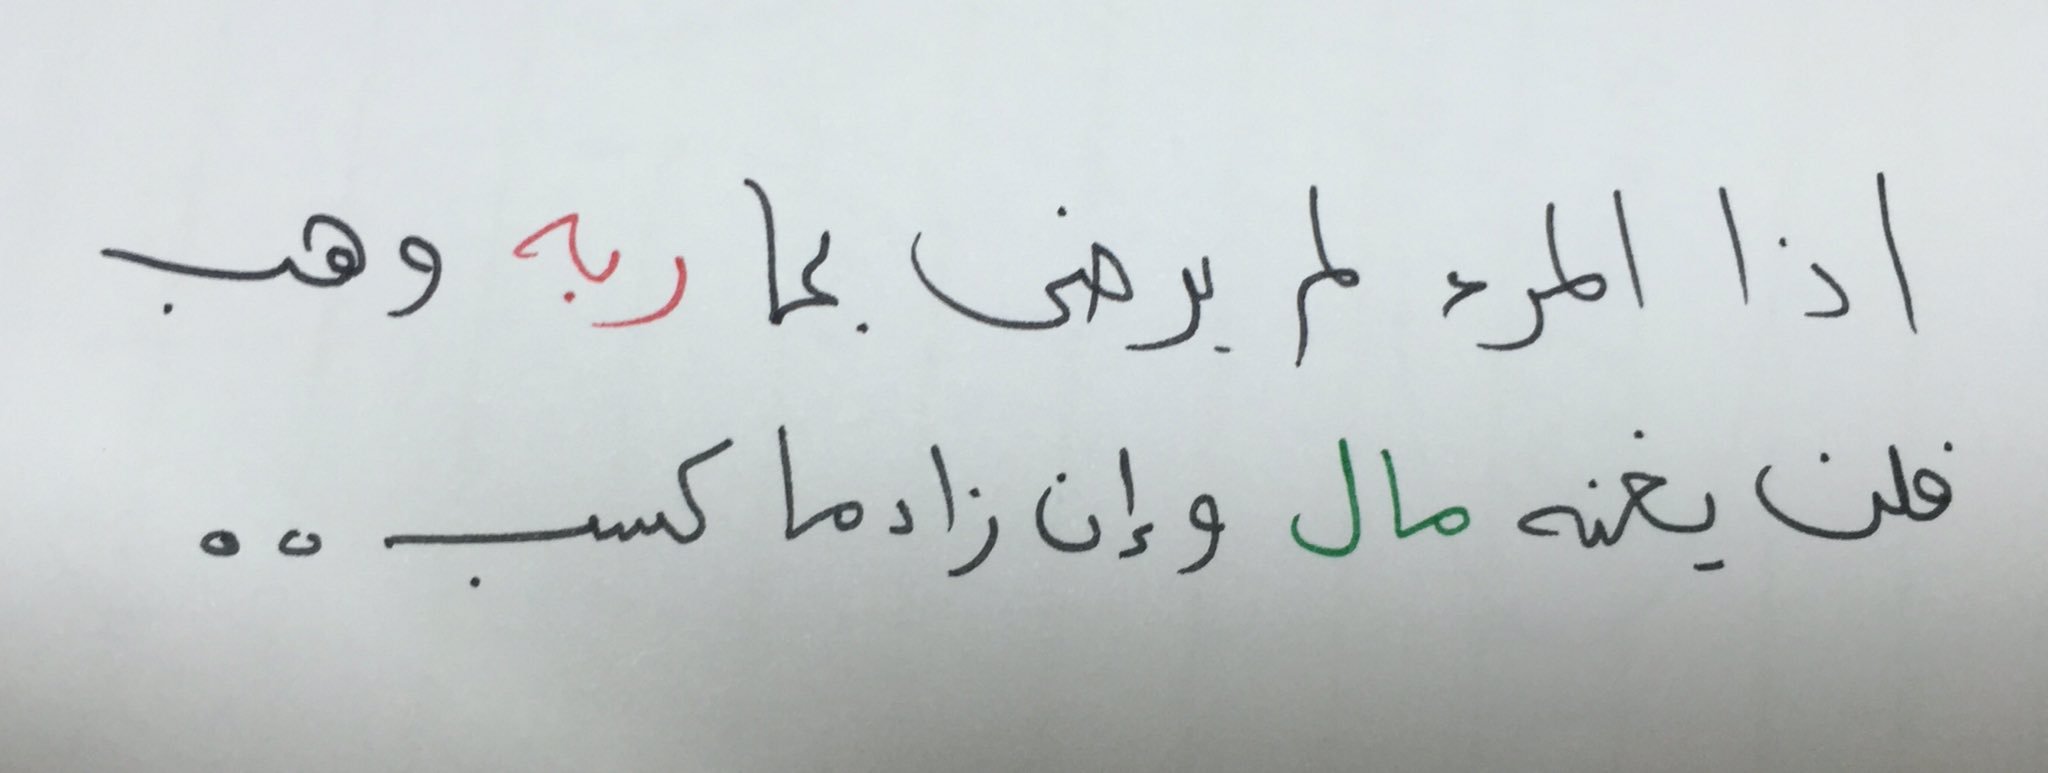 اذا المرء لم يرضى بما ربه وهب
فلن يغنه مال وإن زاد ما كسب ..